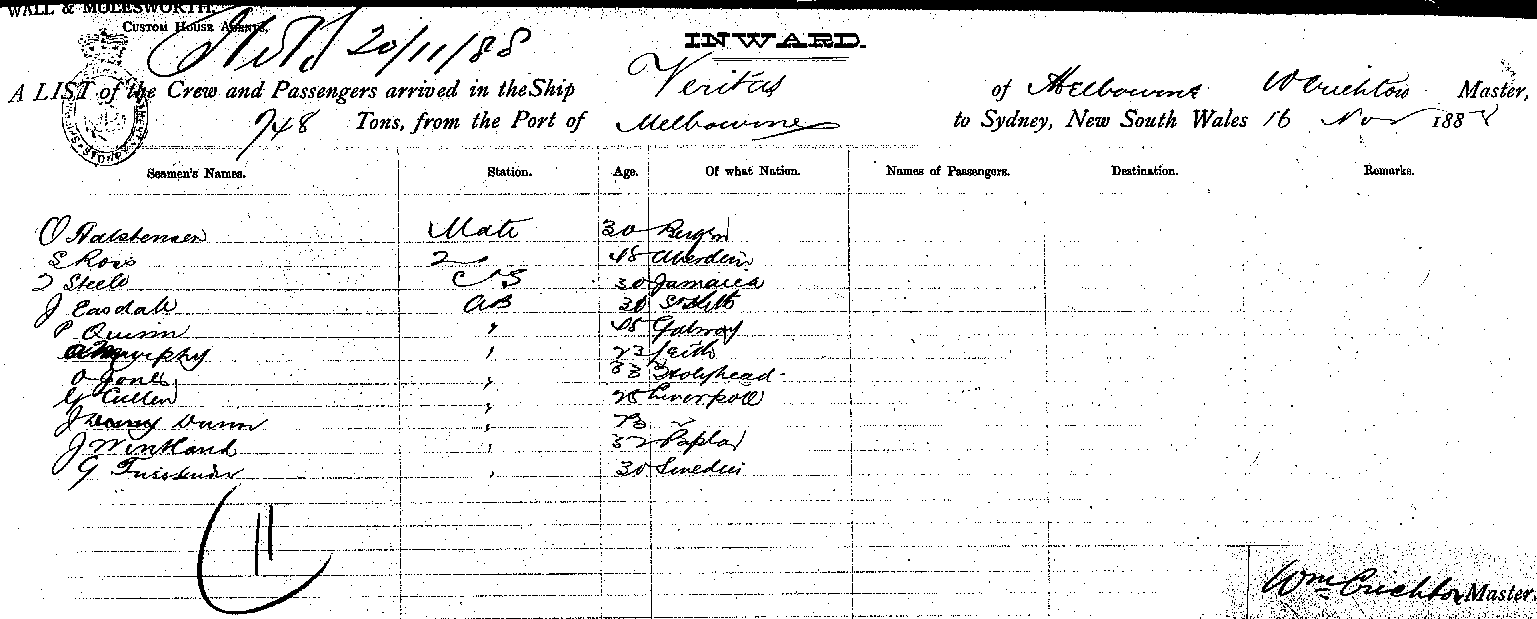 WALL & MOLESWORTH
CUSTOM HOUSE AGENTS,
20/11/88
INWARD.
A LIST of the Crew and Passengers arrived in the Ship Veritas of Melbourne W Crichton Master,
748 Tons, from the Port of Melbourne to Sydney, New South Wales 16 Nov 1888
Seamen's Names. Station. Age. Of what Nation. Names of Passengers. Destination. Remarks.
O Halstensen Mate 30 Bergen
S Ross 2 48 Aberdeen
Steele CS 30 Jamaica
J Easdale AB 30 St Kitts
P Quinn " 45 Galway
Murphy " 23 Leith
O Jones " 33 Holyhead
G Cullen " 28 Liverpool
J Dunn " 23 "
J Wintland " 32 Poplar
G " 30 Sweden
11
Wm Crichton Master.